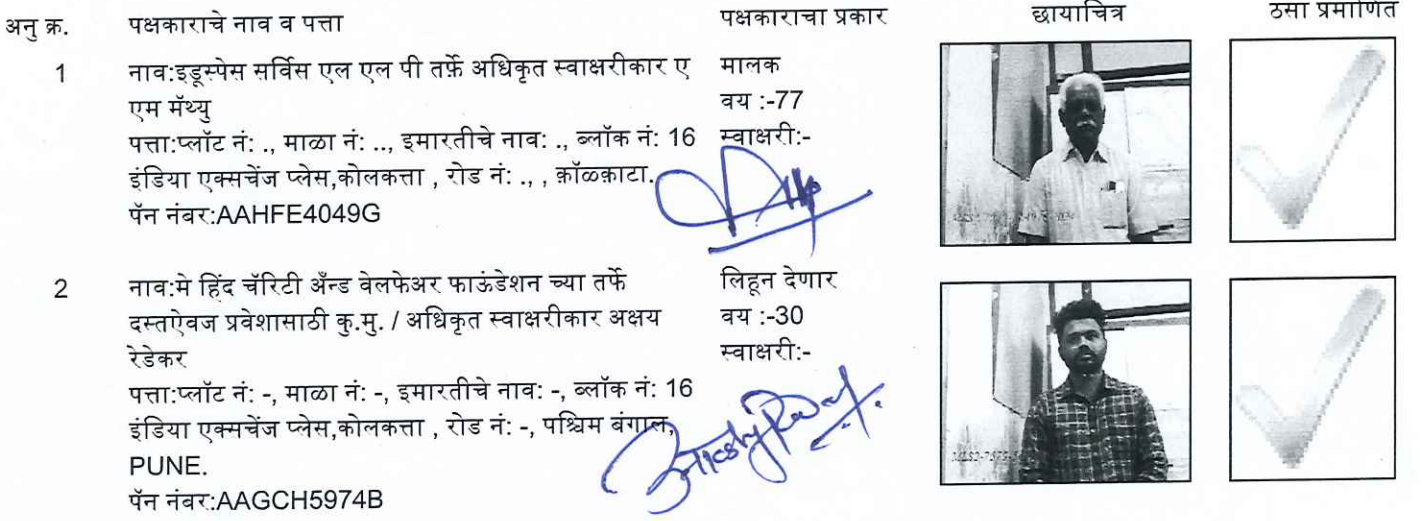 अनु क्र. पक्षकाराचे नाव व पत्ता पक्षकाराचा प्रकार छायाचित्र ठसा प्रमाणित
1 नाव:इडूस्पेस सर्विस एल एल पी तर्फे अधिकृत स्वाक्षरीकार ए मालक
एम मॅथ्यु वय :-77
पत्ता:प्लॉट नं: ., माळा नं: .., इमारतीचे नाव: ., ब्लॉक नं: 16 स्वाक्षरी:-
इंडिया एक्सचेंज प्लेस,कोलकत्ता , रोड नं: ., , क़ॉळ्क़ाटा.
पॅन नंबर:AAHFE4049G
2 नाव:मे हिंद चॅरिटी अँन्ड वेलफेअर फाऊंडेशन च्या तर्फे लिहून देणार
दस्तऐवज प्रवेशासाठी कु.मु. / अधिकृत स्वाक्षरीकार अक्षय वय :-30
रेडेकर स्वाक्षरी:-
पत्ता:प्लॉट नं: -, माळा नं: -, इमारतीचे नाव: -, ब्लॉक नं: 16
इंडिया एक्सचेंज प्लेस,कोलकत्ता , रोड नं: -, पश्चिम बंगाल,
PUNE.
पॅन नंबर:AAGCH5974B